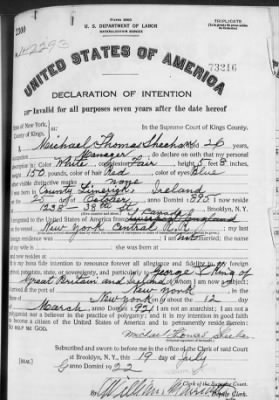 Form 2203
U. S. DEPARTMENT OF LABOR
NATURALIZATION SERVICE
TRIPLICATE
No 2293
UNITED STATES OF AMERICA
73216
DECLARATION OF INTENTION
Invalid for all purposes seven years after the date hereof
State of New York,
County of Kings,
In the Supreme Court of Kings County.
I, Michael Thomas Sheehan, aged 26 years,
occupation Manager, do declare on oath that my personal
description is: Color White, complexion Fair, height 5 feet 8 inches,
weight 150 pounds, color of hair Red, color of eyes Blue
other visible distinctive marks none
I was born in County Limerick Ireland
on the 25 day of October, anno Domini 1895; I now reside
at 1238 - 38th St, Brooklyn, N.Y.
I emigrated to the United States of America from Liverpool England
Canada
New York Central R.R.
I am not married;
she was born at
and now resides at
It is my bona fide intention to renounce forever all allegiance and fidelity to any foreign
prince, potentate, state, or sovereignty, and particularly to George V King of
Great Britain and Ireland, of whom I am now a subject;
I arrived at the port of New York, in the
State of New York, on or about the 12 day
of March, anno Domini 1921; I am not an anarchist; I am not a
polygamist nor a believer in the practice of polygamy; and it is my intention in good faith
to become a citizen of the United States of America and to permanently reside therein:
SO HELP ME GOD.
Michael Thomas Sheehan
Subscribed and sworn to before me in the office of the Clerk of said Court
at Brooklyn, N. Y., this 19 day of July
[SEAL] anno Domini 1922
Clerk of the Supreme Court.
By Clerk.